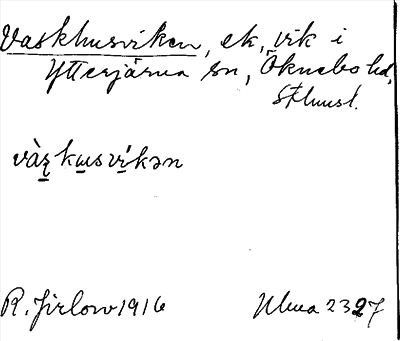 Vaskhusviken, ek, vik i
Ytterjärna sn, Öknebo hd,
Sthmsl.
vàs̱kusvíkən
R. Jirlow 1916 Uma 2327